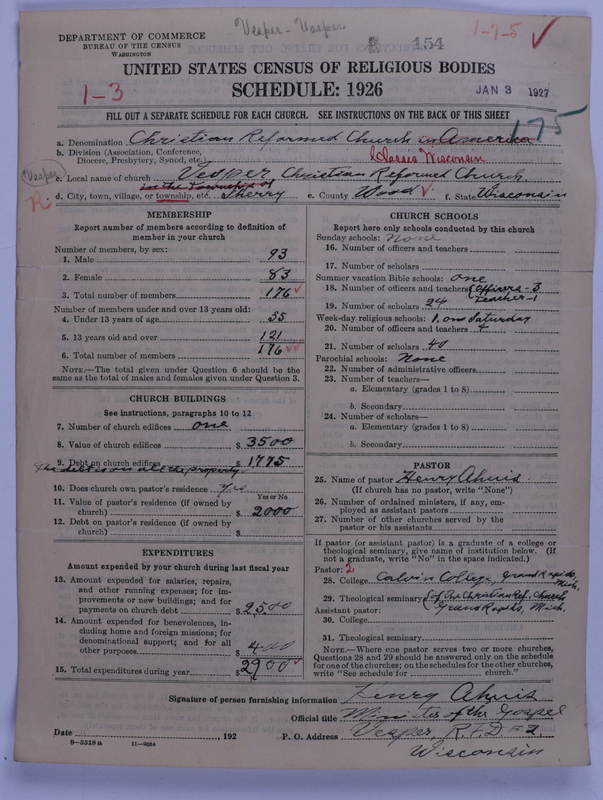 Vesper - Vesper
1-7-5 ✓
DEPARTMENT OF COMMERCE
BUREAU OF THE CENSUS
WASHINGTON
154
UNITED STATES CENSUS OF RELIGIOUS BODIES
SCHEDULE: 1926
1-3
JAN 3 1927
FILL OUT A SEPARATE SCHEDULE FOR EACH CHURCH. SEE INSTRUCTIONS ON THE BACK OF THIS SHEET
175
a. Denomination Christian Reformed Church in America
b. Division (Association, Conference,
Diocese, Presbytery, Synod, etc.) Classis Wisconsin
Vesper
c. Local name of church Vesper Christian Reformed Church
in the Township of
R.
d. City, town, village, or township, etc. Sherry e. County Wood ✓ f. State Wisconsin
MEMBERSHIP
Report number of members according to definition of
member in your church
Number of members, by sex:
1. Male 93
2. Female 83
3. Total number of members 176 ✓
Number of members under and over 13 years old:
4. Under 13 years of age 55
5. 13 years old and over 121
6. Total number of members 176 ✓✓
NOTE.—The total given under Question 6 should be
same as the total of males and females given under Question 3.
CHURCH BUILDINGS
See instructions, paragraphs 10 to 12
7. Number of church edifices one
8. Value of church edifices $ 3500
9. Debt on church edifices $ 1775
The debt is on all the property.
10. Does church own pastor's residence Yes
Yes or No
11. Value of pastor's residence (if owned by
church) $ 2000
12. Debt on pastor's residence (if owned by
church) $
EXPENDITURES
Amount expended by your church during last fiscal year
13. Amount expended for salaries, repairs,
and other running expenses; for im-
provements or new buildings; and for
payments on church debt $ 2500
14. Amount expended for benevolences, in-
cluding home and foreign missions; for
denominational support; and for all
other purposes $ 400
15. Total expenditures during year $ 2900 ✓
CHURCH SCHOOLS
Report here only schools conducted by this church
Sunday schools: None
16. Number of officers and teachers
17. Number of scholars
Summer vacation Bible schools: one
18. Number of officers and teachers (officers - 3
teacher - 1
19. Number of scholars 24
Week-day religious schools: 1, on Saturday
20. Number of officers and teachers 4
21. Number of scholars 40
Parochial schools: None
22. Number of administrative officers
23. Number of teachers—
a. Elementary (grades 1 to 8)
b. Secondary
24. Number of scholars—
a. Elementary (grades 1 to 8)
b. Secondary
PASTOR
25. Name of pastor Henry Ahuis
(If church has no pastor, write "None")
26. Number of ordained ministers, if any, em-
ployed as assistant pastors
27. Number of other churches served by the
pastor or his assistants
If pastor (or assistant pastor) is a graduate of a college or
theological seminary, give name of institution below. (If
not a graduate, write "No" in the space indicated.)
Pastor: 2
28. College Calvin College, Grand Rapids, Mich.
29. Theological seminary (of the Christian Ref. Church,
Grand Rapids, Mich.
Assistant pastor:
30. College
31. Theological seminary
NOTE.—Where one pastor serves two or more churches,
Questions 28 and 29 should be answered only on the schedule
for one of the churches; on the schedules for the other churches,
write "See schedule for church."
Signature of person furnishing information Henry Ahuis
Official title Minister of the Gospel
Date , 192 P. O. Address Vesper, R.F.D. #2
8—5518 a 11—9054
Wisconsin